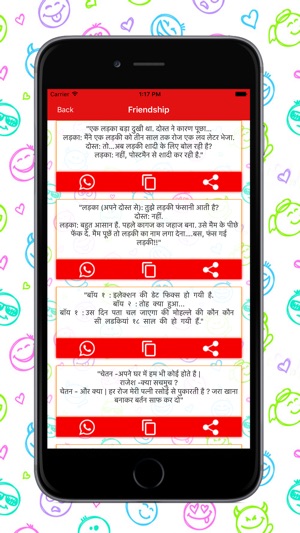 Carrier
1:17 PM
Back
Friendship
"एक लड़का बड़ा दुखी था. दोस्त ने कारण पूछा...
लड़का: मैंने एक लड़की को तीन साल तक रोज एक लव लेटर भेजा.
दोस्त: तो...अब लड़की शादी के लिए बोल रही है?
लड़का: नहीं, पोस्टमैन से शादी कर रही है."
"लड़का (अपने दोस्त से): तुझे लड़की फंसानी आती है?
दोस्त: नहीं.
लड़का: बहुत आसान है. पहले कागज का जहाज बना. उसे मैम के पीछे
फेंक दे. मैम पूछे तो लड़की का नाम लगा देना....बस, फंस गई
लड़की!!"
"बॉय १ : इलेक्शन की डेट फिक्स हो गयी है.
बॉय २ : तोह क्या हुआ...
बॉय १ : उस दिन पता चल जाएगा की मोहल्ले की कौन कौन
सी लडकियां १८ साल की हो गयी है."
"चेतन –अपने घर में हम भी कोई होते है |
राजेश -क्या सचमुच ?
चेतन – और क्या | हर रोज मेरी पत्नी रसोई से पुकारती है ? जरा खाना
बनाकर बर्तन साफ कर दो"